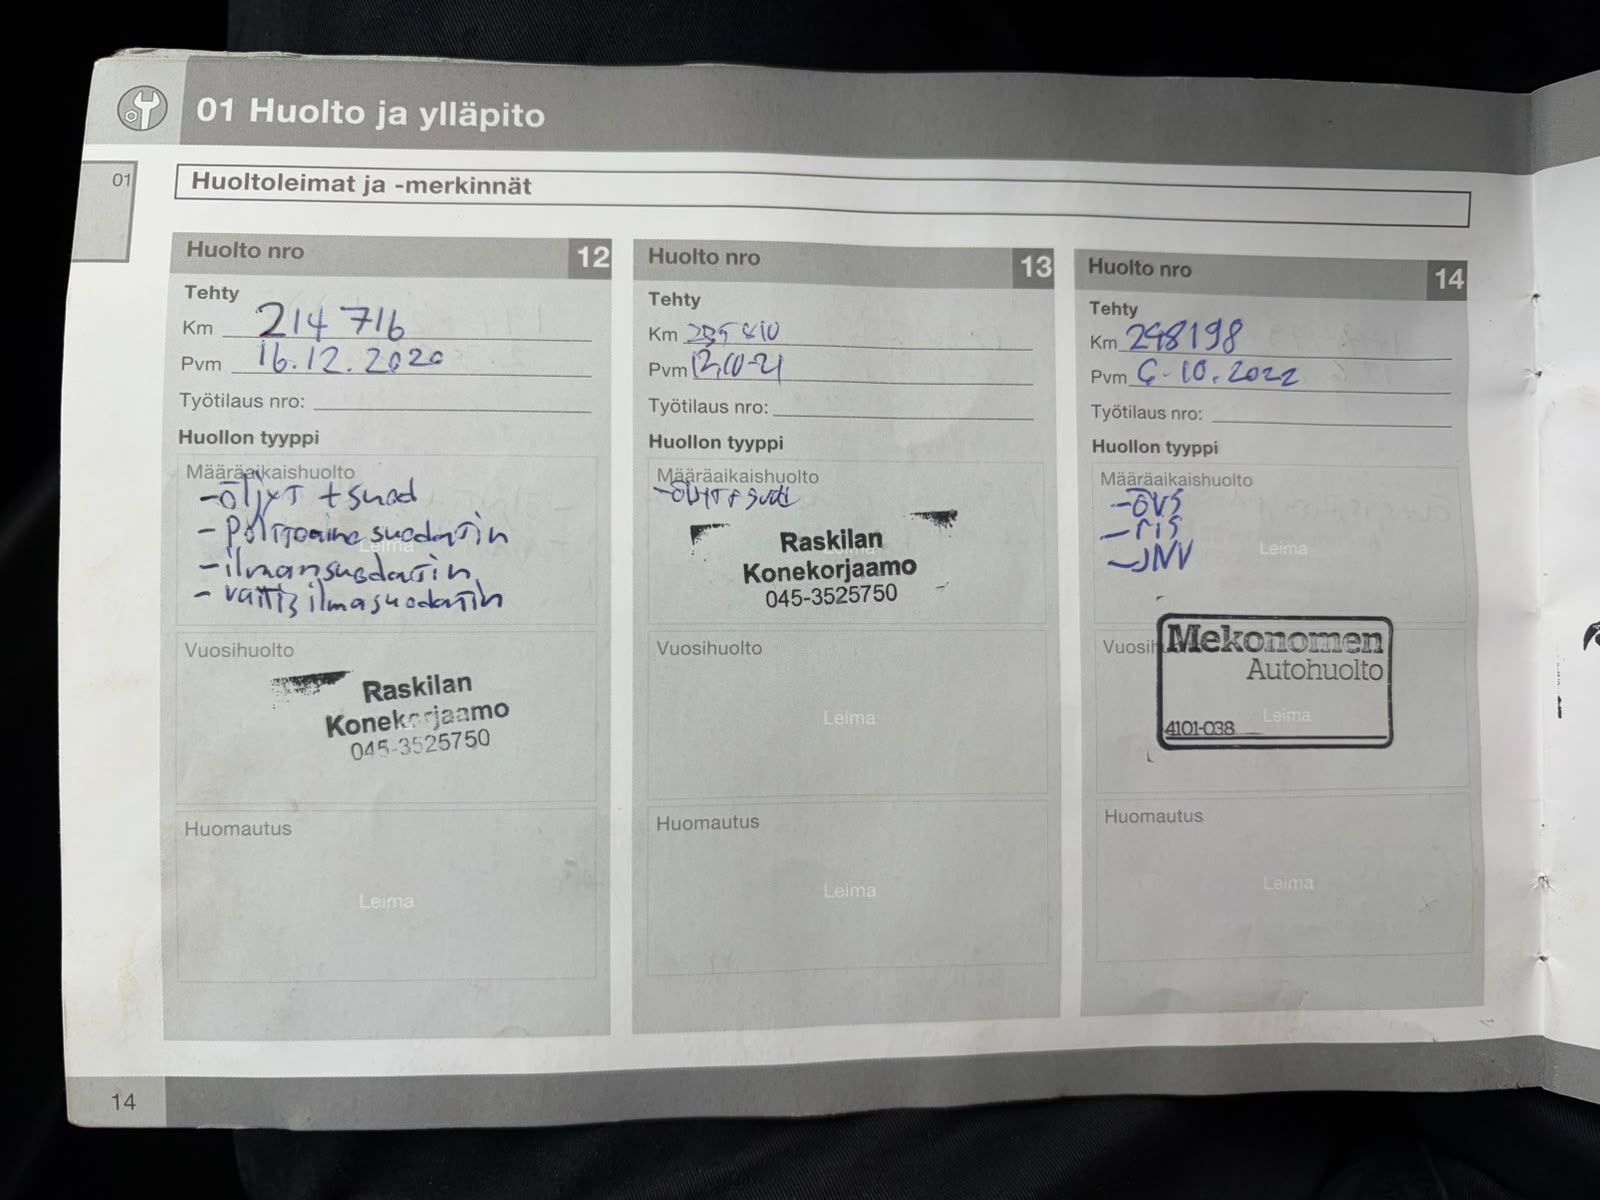 01 Huolto ja ylläpito
01
Huoltoleimat ja -merkinnät
Huolto nro 12
Tehty
Km 214 716
Pvm 16.12.2020
Työtilaus nro:
Huollon tyyppi
Määräaikaishuolto
-öljyt + suod
- Polttoainesuodatin
Leima
-ilmansuodatin
- raitisilmasuodatin
Vuosihuolto
Raskilan
Konekorjaamo
045-3525750
Huomautus
Leima
Huolto nro 13
Tehty
Km
Pvm 12,10-21
Työtilaus nro:
Huollon tyyppi
Määräaikaishuolto
-öljyt + suod
Raskilan
Konekorjaamo
045-3525750
Vuosihuolto
Leima
Huomautus
Leima
Huolto nro 14
Tehty
Km 248198
Pvm 6-10.2022
Työtilaus nro:
Huollon tyyppi
Määräaikaishuolto
-ÖVS
-RIS
-JNV
Leima
Mekonomen
Autohuolto
Leima
4101-038
Huomautus
Leima
14